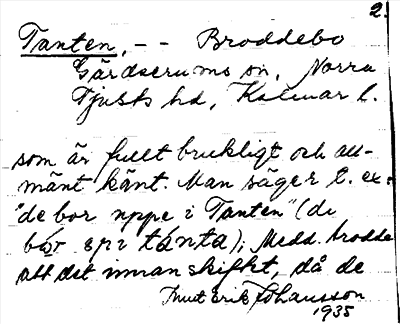 2.
Tanten, -- Broddebo
Gärdserums sn, Norra
Tjusts hd, Kalmar l.
som är fullt brukligt och all-
mänt känt. Man säger t. ex.:
"de bor uppe i Tanten" (di
epi tánta); Medd. trodde
att det innan skiftet, då de
Knut Erik Johansson
1935